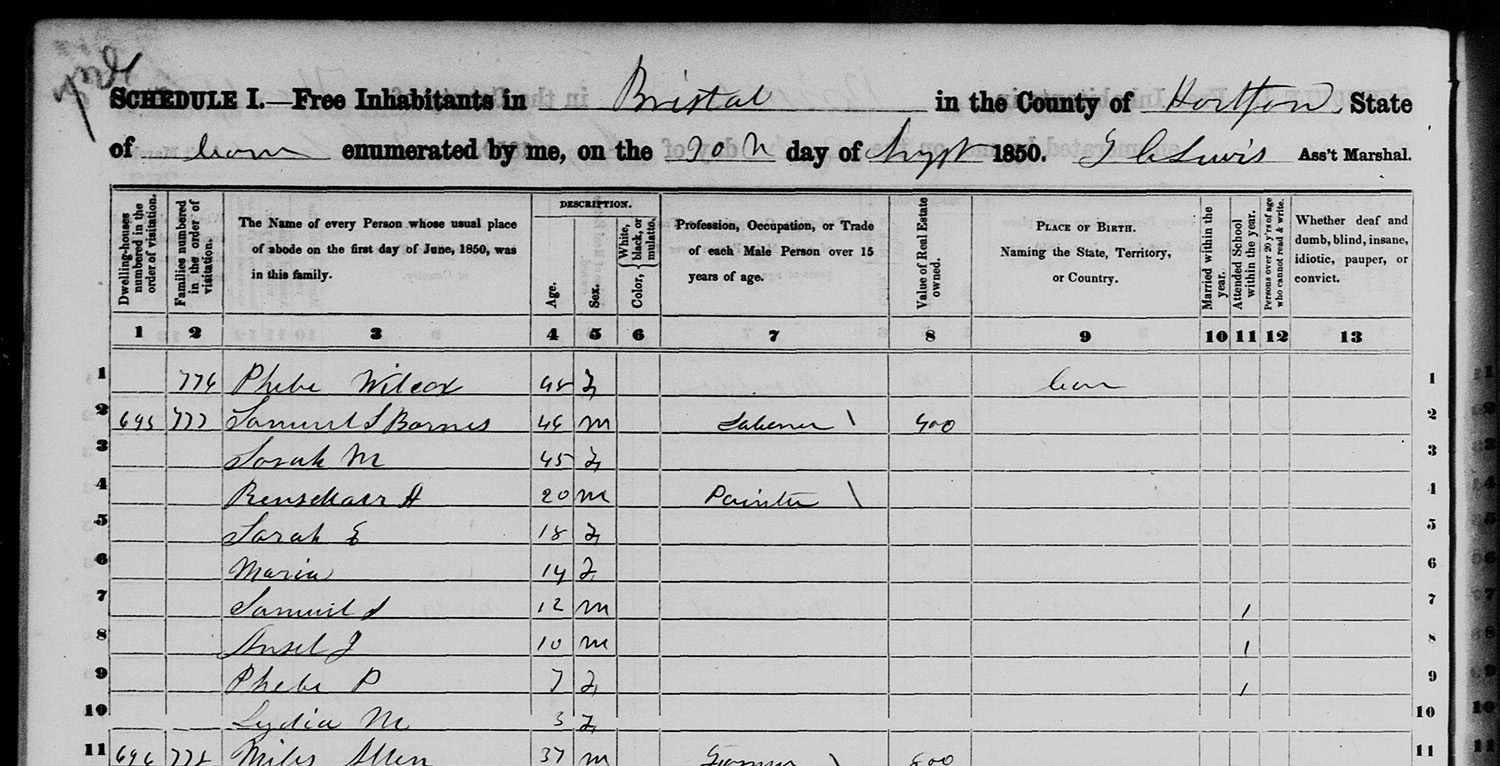 SCHEDULE I.—Free Inhabitants in Bristol in the County of Hartford State
of Conn enumerated by me, on the 20th day of Augst 1850. Lewis Ass't Marshal.
DESCRIPTION.
Dwelling-houses numbered in the order of visitation.
Families numbered in the order of visitation.
The Name of every Person whose usual place of abode on the first day of June, 1850, was in this family.
Age.
Sex.
Color, { White, black, or mulatto.
Profession, Occupation, or Trade of each Male Person over 15 years of age.
Value of Real Estate owned.
PLACE OF BIRTH. Naming the State, Territory, or Country.
Married within the year.
Attended School within the year.
Persons over 20 y'rs of age who cannot read & write.
Whether deaf and dumb, blind, insane, idiotic, pauper, or convict.
1 2 3 4 5 6 7 8 9 10 11 12 13
1 776 Phebe Wilcox F Conn 1
2 695 777 Samuel S Barnes 46 M Laborer \ 2
3 Sarah M 45 F 3
4 H 20 M Painter \ 4
5 Sarah E 18 F 5
6 Maria 14 F 6
7 Samuel S 12 M / 7
8 Ansel J 10 M / 8
9 Phebe P 7 F / 9
10 Lydia M 3 F 10
11 696 778 Miles Allen 37 M Farmer \ 800 11